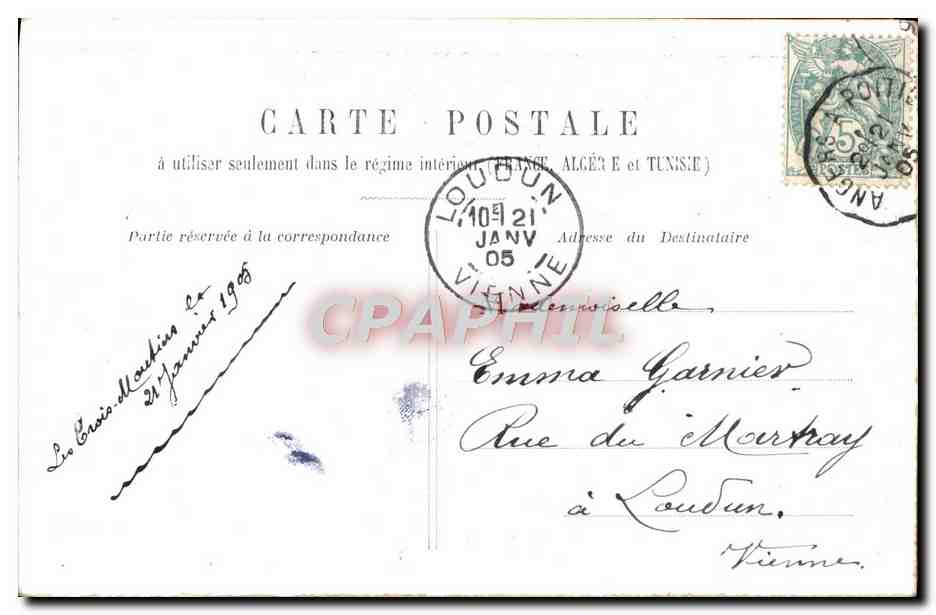 CARTE POSTALE
à utiliser seulement dans le régime intérieur (FRANCE, ALGÉRIE et TUNISIE)
Partie réservée à la correspondance
Adresse du Destinataire
LOUDUN
10E 21
JANV
05
VIENNE
5
POSTES
ANGERS A POITI
21
JANV
05
Les Trois-Moutiers le
21 Janvier 1905
Mademoiselle
Emma Garnier
Rue du Martray
à Loudun.
Vienne.
CPAPHIL